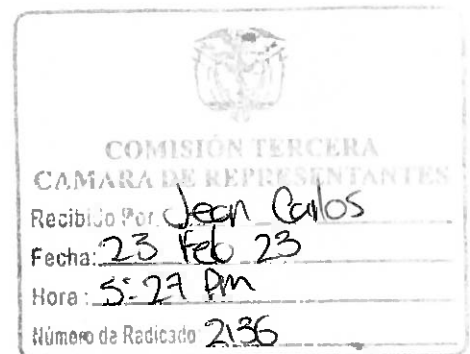 COMISIÓN TERCERA
CAMARA DE REPRESENTANTES
Recibido Por: Jean Carlos
Fecha: 23 Feb 23
Hora: 5:27 PM
Número de Radicado 2136